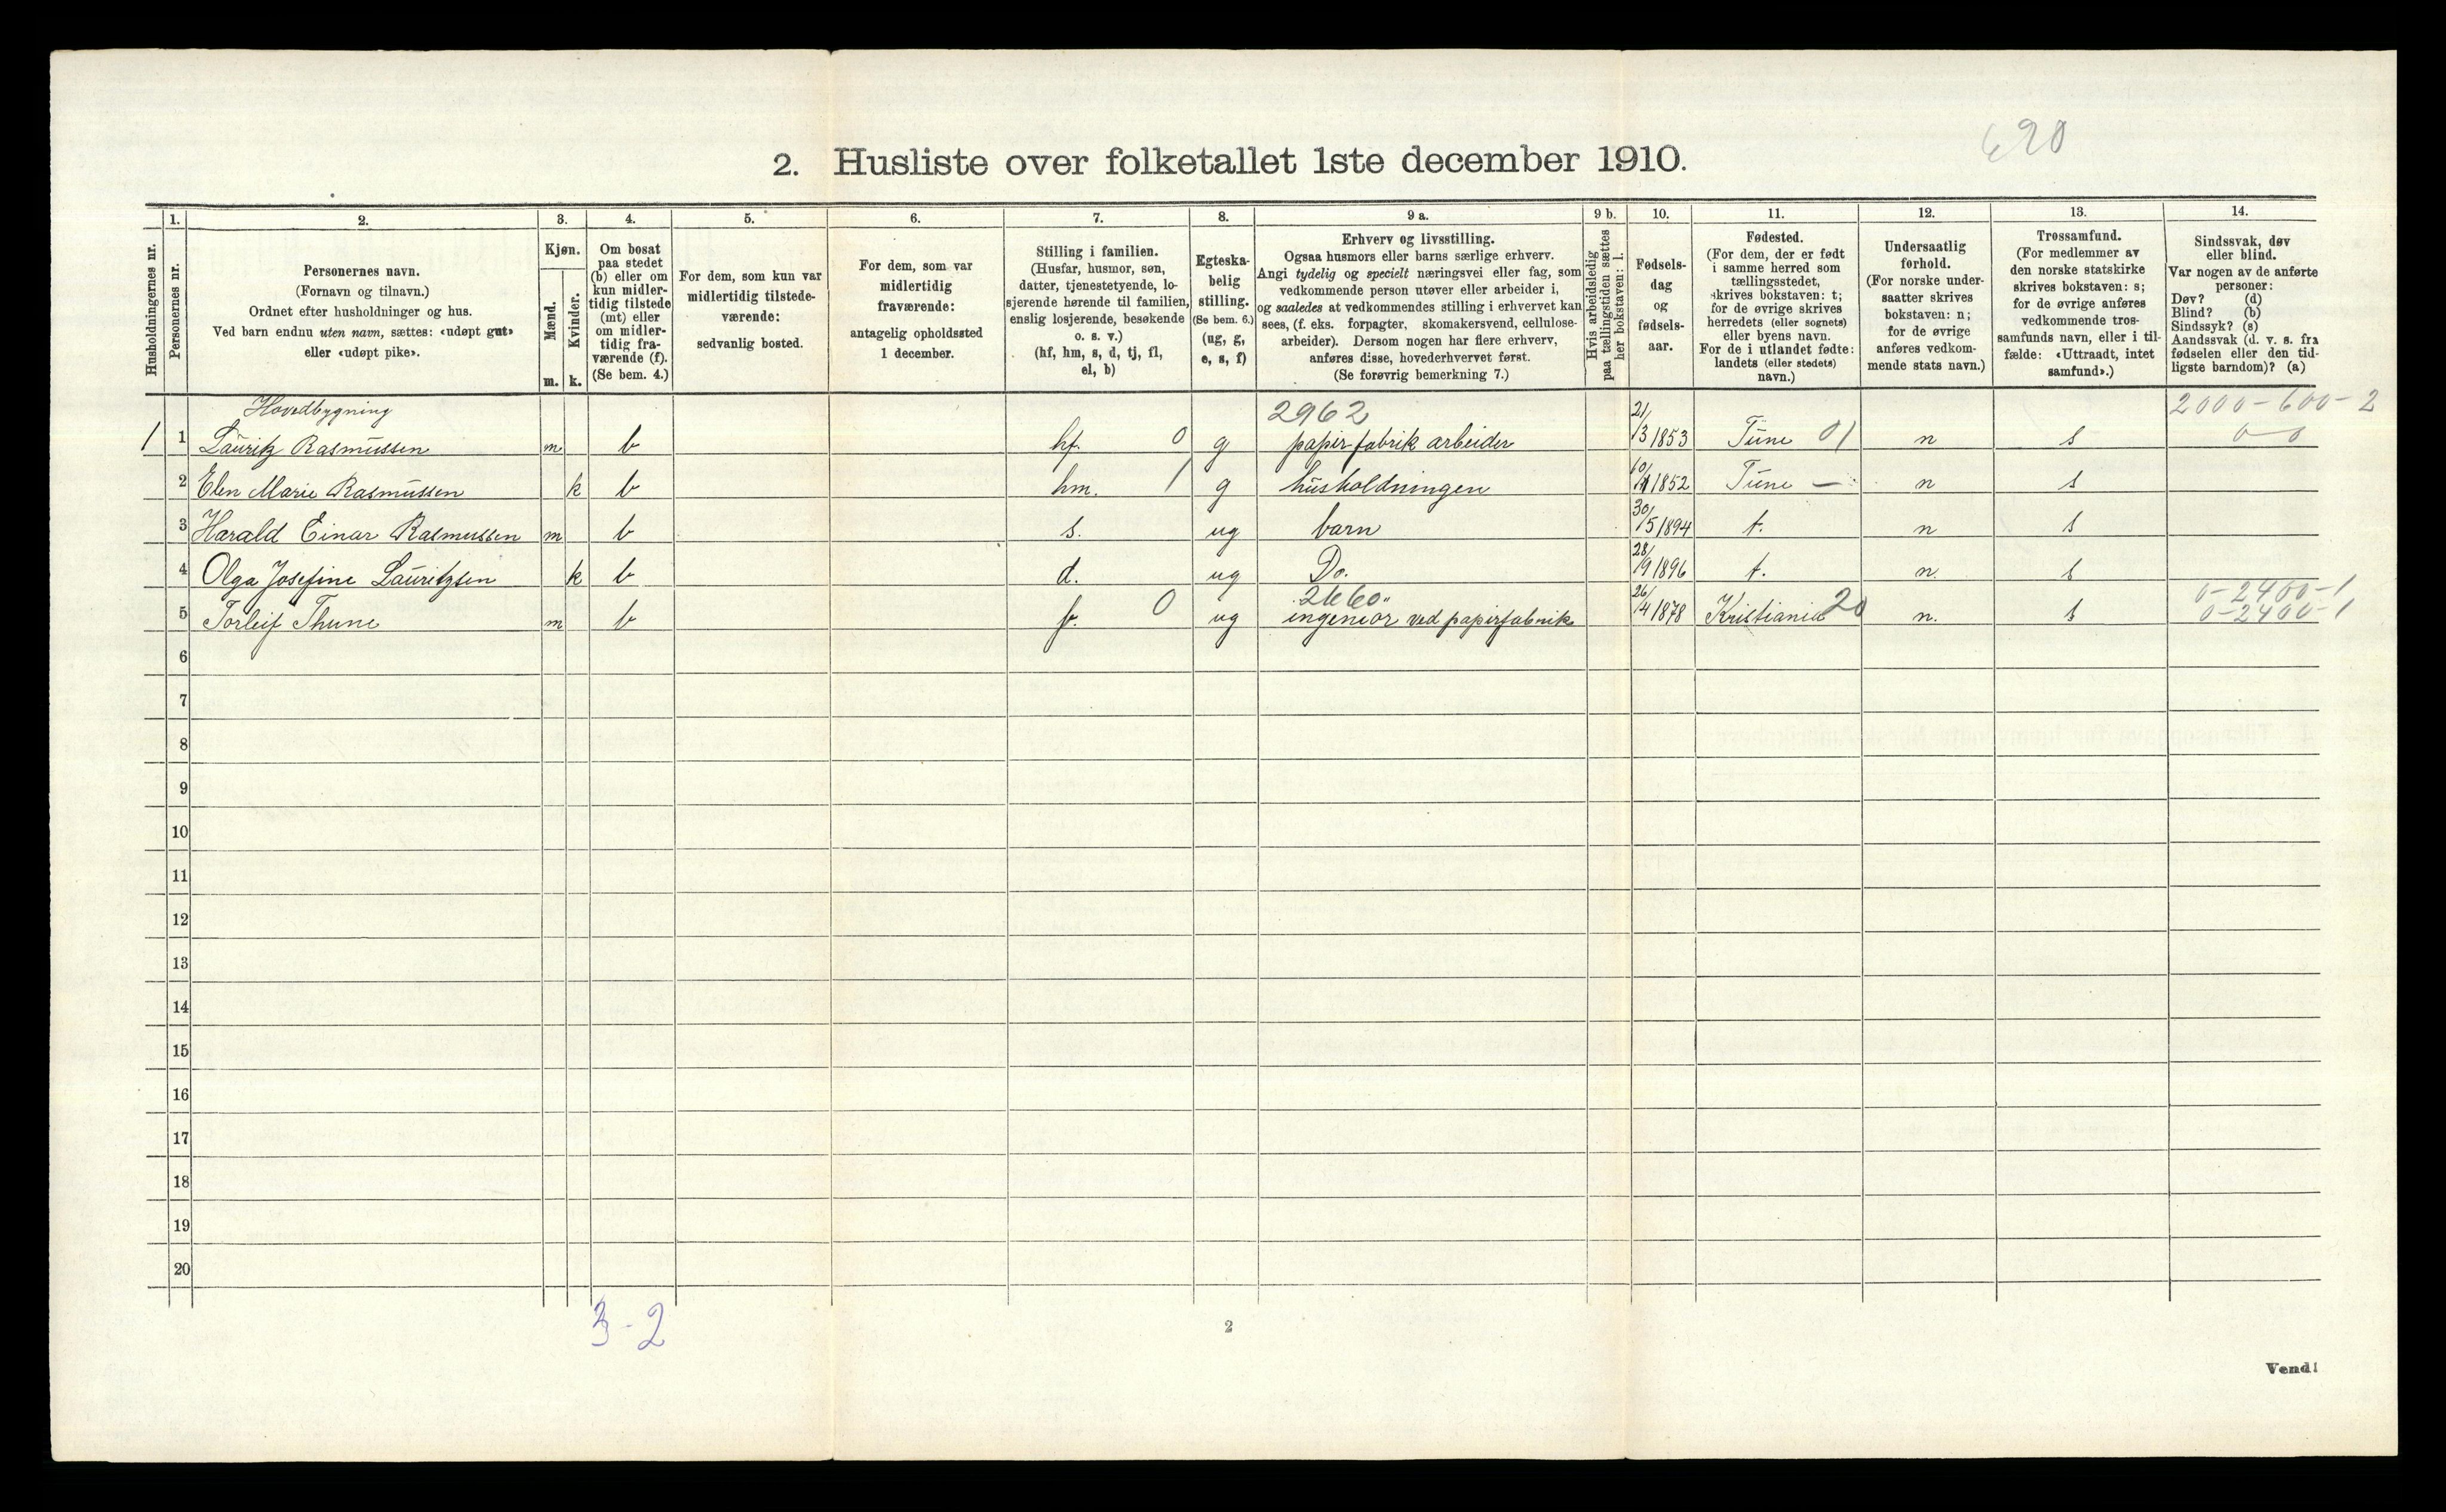 620
2. Husliste over folketallet 1ste december 1910.
Husholdningernes nr.
1.
Personernes nr.
2.
Personernes navn.
(Fornavn og tilnavn.)
Ordnet efter husholdninger og hus.
Ved barn endnu uten navn, sættes: «udøpt gut»
eller «udøpt pike».
3.
Kjøn.
Mænd.
m.
Kvinder.
k.
4.
Om bosat
paa stedet
(b) eller om
kun midler-
tidig tilstede
(mt) eller
om midler-
tidig fra-
værende (f).
(Se bem. 4.)
5.
For dem, som kun var
midlertidig tilstede-
værende:
sedvanlig bosted.
6.
For dem, som var
midlertidig
fraværende:
antagelig opholdssted
1 december.
7.
Stilling i familien.
(Husfar, husmor, søn,
datter, tjenestetyende, lo-
sjerende hørende til familien,
enslig losjerende, besøkende
o. s. v.)
(hf, hm, s, d, tj, fl,
el, b)
8.
Egteska-
belig
stilling.
(Se bem. 6.)
(ug, g,
e, s, f)
9 a.
Erhverv og livsstilling.
Ogsaa husmors eller barns særlige erhverv.
Angi tydelig og specielt næringsvei eller fag, som
vedkommende person utøver eller arbeider i,
og saaledes at vedkommendes stilling i erhvervet kan
sees, (f. eks. forpagter, skomakersvend, cellulose-
arbeider). Dersom nogen har flere erhverv,
anføres disse, hovederhvervet først.
(Se forøvrig bemerkning 7.)
9 b.
Hvis arbeidsledig
paa tællingstiden sættes
her bokstaven: l.
10.
Fødsels-
dag
og
fødsels-
aar.
11.
Fødested.
(For dem, der er født
i samme herred som
tællingsstedet,
skrives bokstaven: t;
for de øvrige skrives
herredets (eller sognets)
eller byens navn.
For de i utlandet fødte:
landets (eller stedets)
navn.)
12.
Undersaatlig
forhold.
(For norske under-
saatter skrives
bokstaven: n;
for de øvrige
anføres vedkom-
mende stats navn.)
13.
Trossamfund.
(For medlemmer av
den norske statskirke
skrives bokstaven: s;
for de øvrige anføres
vedkommende tros-
samfunds navn, eller i til-
fælde: «Uttraadt, intet
samfund».)
14.
Sindssvak, døv
eller blind.
Var nogen av de anførte
personer:
Døv? (d)
Blind? (b)
Sindssyk? (s)
Aandssvak (d. v. s. fra
fødselen eller den tid-
ligste barndom)? (a)
Hovedbygning 2962 2000-600-2
1 1 Lauritz Rasmussen m b hf. 0 g papirfabrik arbeider 21/3 1853 Tune 01 n s 0-0
2 Elen Marie Rasmussen k b hm. 1 g husholdningen 1852 Tune — n s
3 Harald Einar Rasmussen m b s. ug barn 30/5 1894 t. n s
4 Olga Josefine Lauritzsen k b d. ug Do. 28/9 1896 t. n. s
2660 0-2400-1
5 Torleif Thune m b f. 0 ug ingeniør ved papirfabrik 26/4 1878 Kristiania 20 n. s 0-2400-1
6
7
8
9
10
11
12
13
14
15
16
17
18
19
20
3-2
2
Vend!